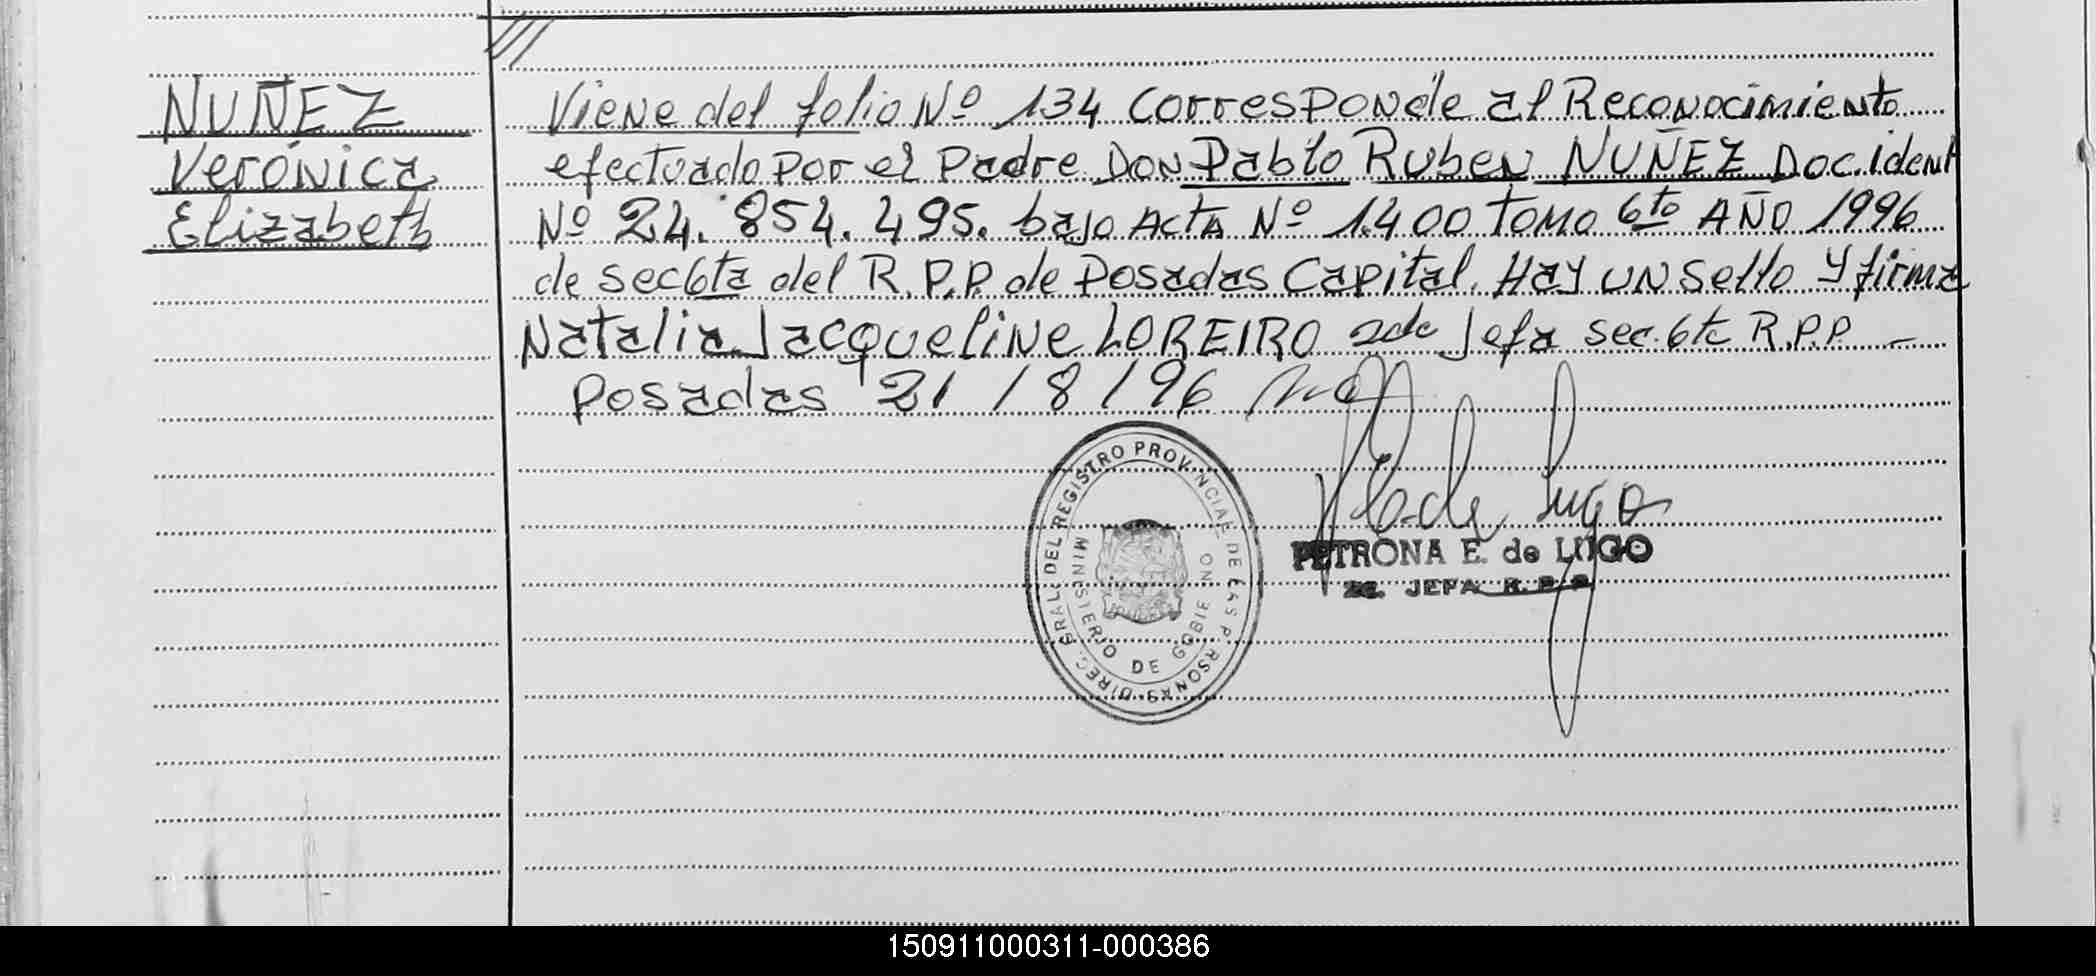 NUÑEZ
Verónica
Elizabeth
Viene del folio Nº 134 Corresponde al Reconocimiento
efectuado Por el Padre Don Pablo Ruben NUÑEZ Doc. ident
Nº 24.854.495. bajo Acta Nº 1.400 Tomo 6to AÑO 1996
de sec 6ta del R.P.P. de Posadas Capital. Hay un sello y firma
Natalia Jacqueline LOREIRO 2da Jefa sec. 6ta R.P.P. -
Posadas 21/8/96
DIREC. GRAL. DEL REGISTRO PROVINCIAL DE LAS PERSONAS
MINISTERIO DE GOBIERNO
E. de Lugo
PETRONA E. de LUGO
2a. JEFA R. P. P.
150911000311-000386